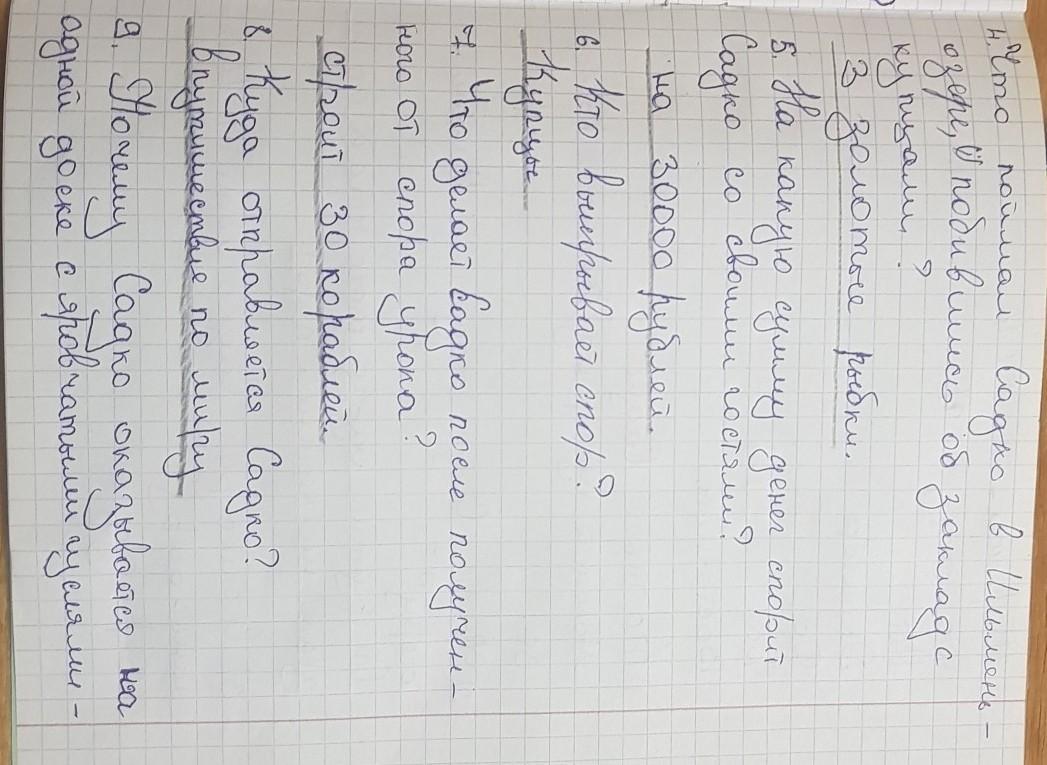 4. Что поймал Садко в Ильмень-
озере, побившись об заклад с
купцами?
3 золотые рыбки.
5. На какую сумму денег спорит
Садко со своими гостями?
на 30000 рублей.
6. Кто выигрывает спор?
Купцы
7. Что делает Садко после получен-
ного от спора урока?
строит 30 кораблей.
8. Куда отправляется Садко?
в путишествие по миру
9. Почему Садко оказывается на
одной доске с яровчатыми гуслями-